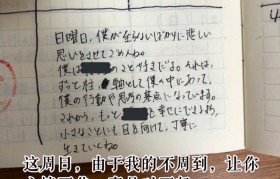 日曜日、僕が至らないばかりに悲しい
思いをさせてごめんね。
僕は のこと好きだよ。それは、
ずっと柱、軸として僕の中にあって、
僕の行動や思考の基点になっています。
これから、もっと を幸せにできるよう、
小さなことにも目を向けて、丁寧に
生きていくね。
这周日，由于我的不周到，让你